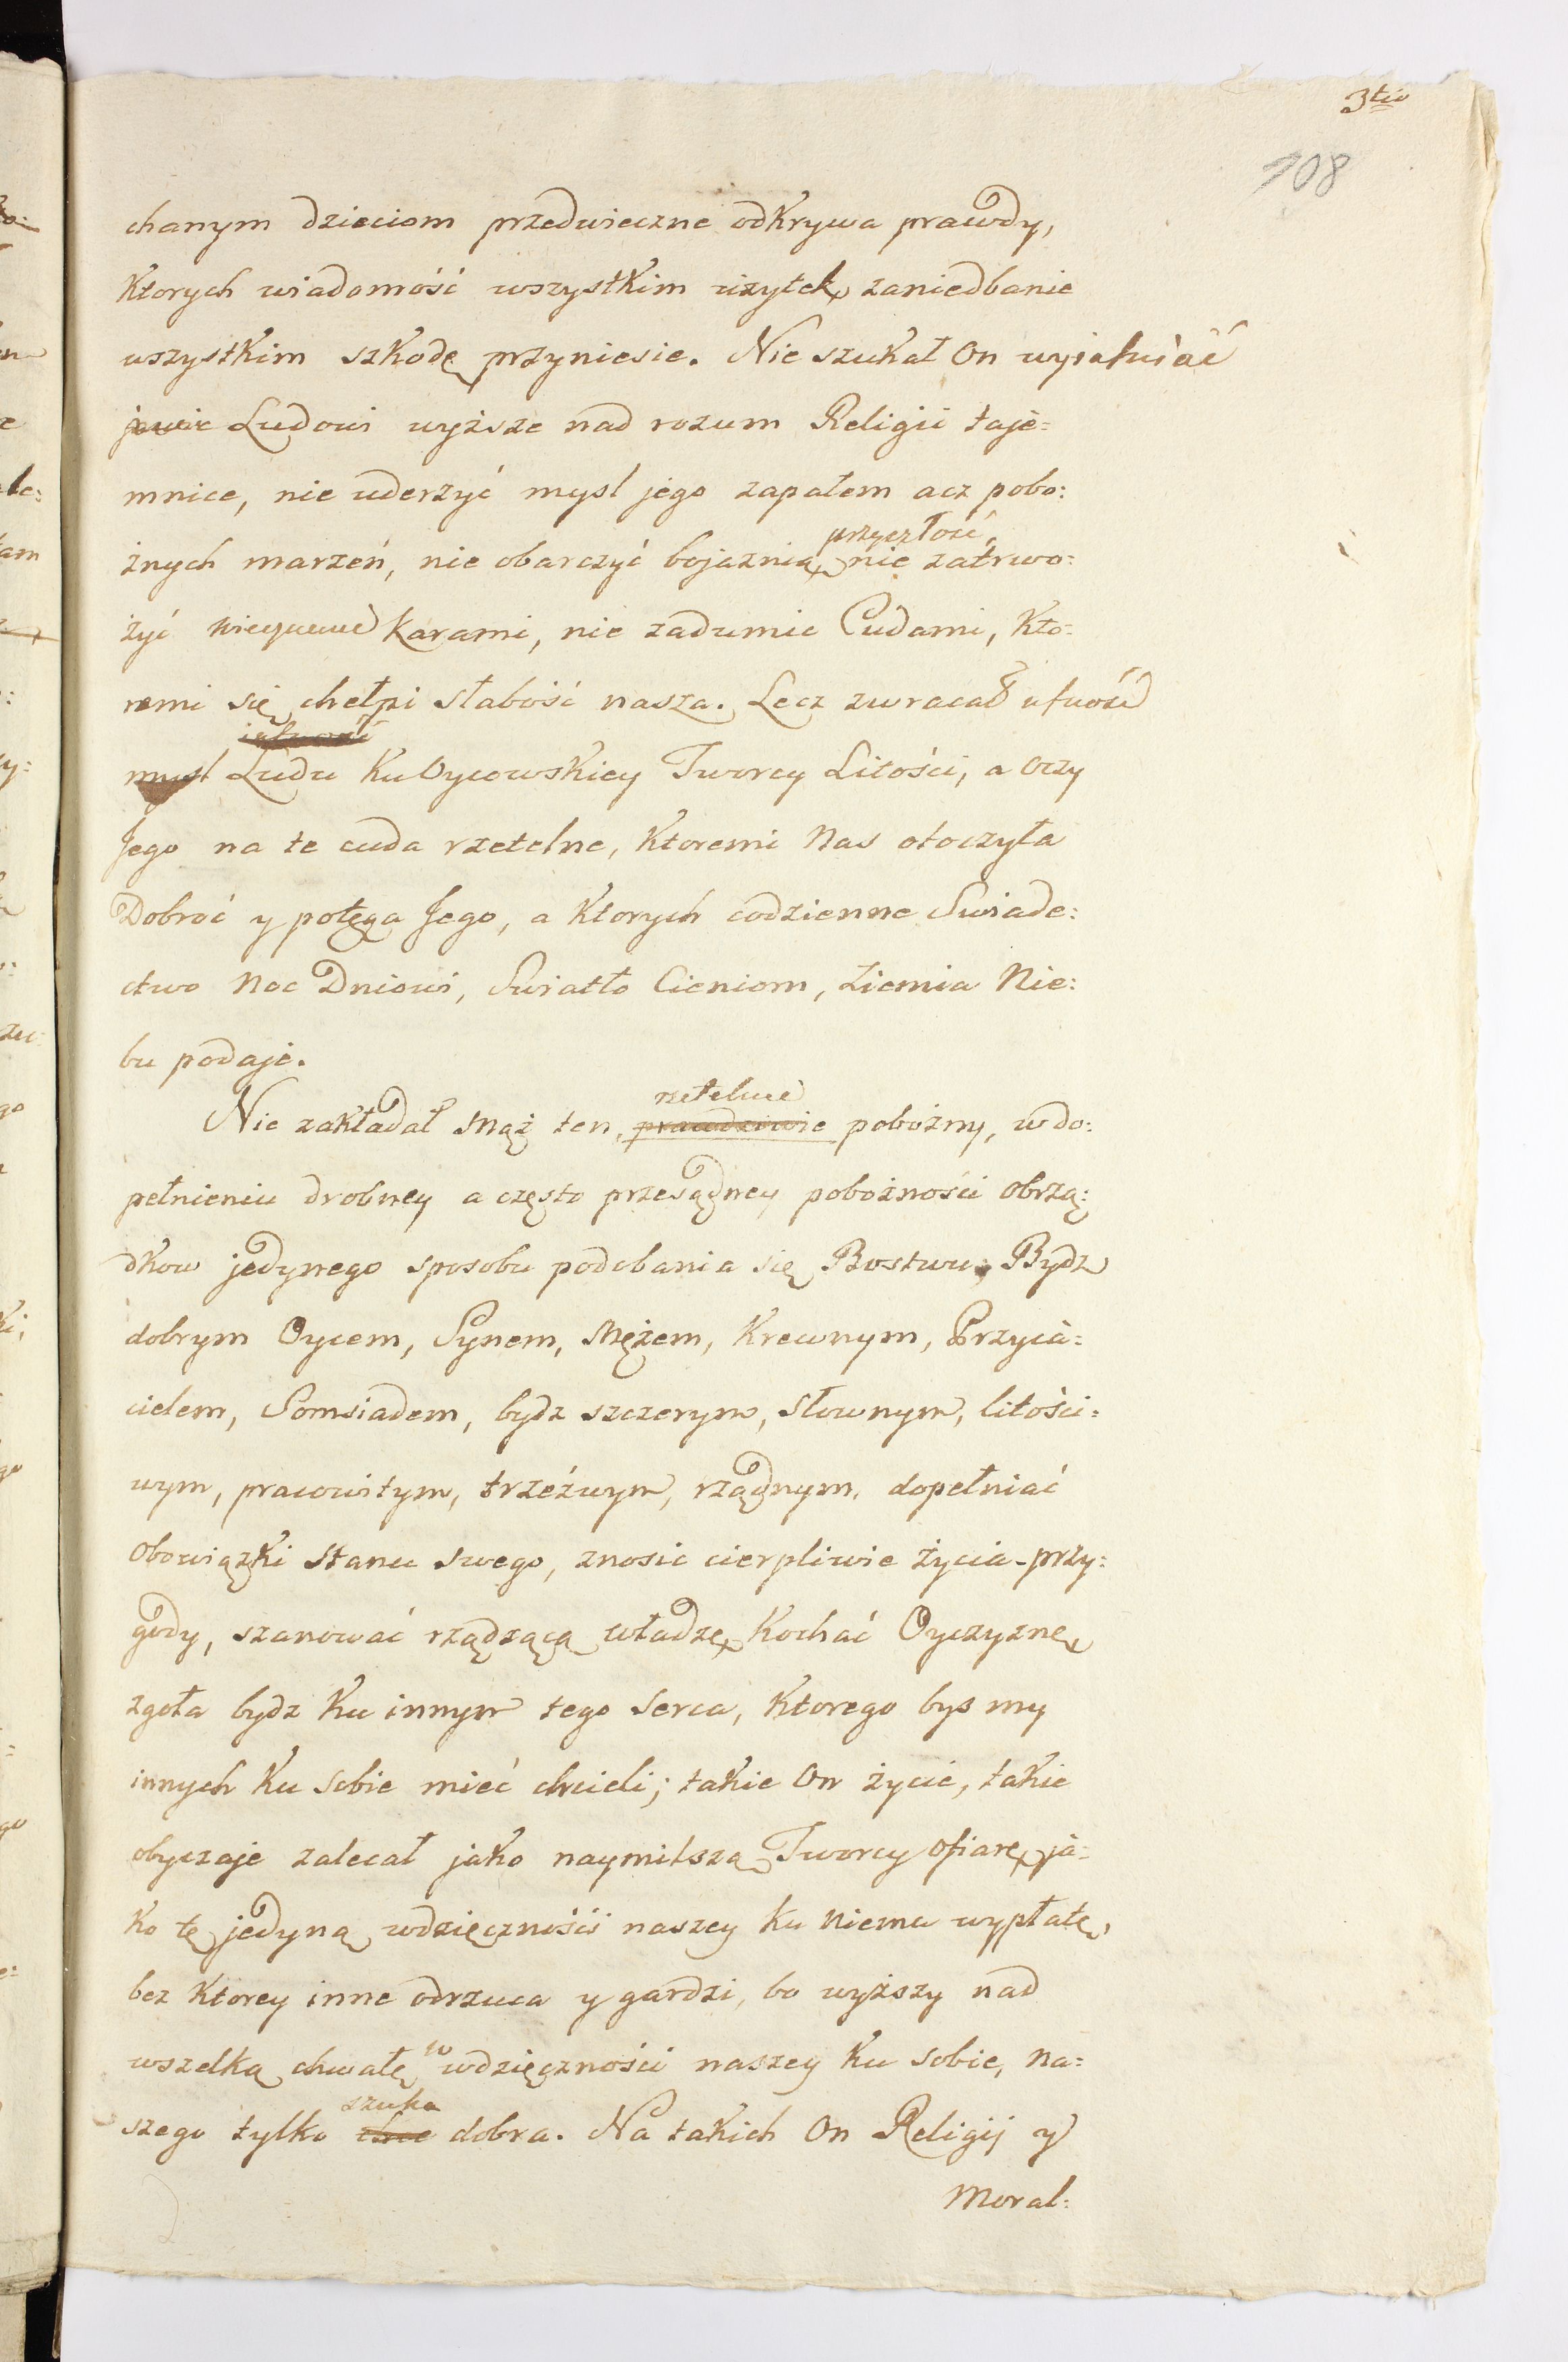 3tio
108
chanym dzieciom przedwieczne odkrywa prawdy,
Ktorych wiadomość wszystkim użytek, zaniedbanie
wszystkim szkodę przyniesie. Nie szukał On wyiaśniać
Ludowi wyższe nad rozum Religii taje=
mnice, nie uderzyć mysl jego zapałem acz pobo:
żnych marzeń, nie obarczyć bojaznią
przyszłość,
nie zatrwo:
żyć karami, nie zadumic Cudami, Kto=
remi się chełpi słabość nasza. Lecz zwracał ufność
mysl Ludu Ku Oycowskiey Tworcy Litości, a Oczy
Jego na te cuda rzetelne, Ktoremi Nas otoczyła
Dobroć y potęga Jego, a Ktorych codzienne Swiade:
ctwo Noc Dniowi, Swiatło Cieniom, Ziemia Nie:
bu podaje.
rzetelnie
Nie zakładał Mąż ten, prawdziwie pobożny, w do:
pełnieniu drobney a często przesądney pobożności Obrzą:
dkow jedynego sposobu podobania się Bostwu; Bydz
dobrym Oycem, Synem, Mężem, Krewnym, Przyia=
cielem, Somsiadem, bydz szczerym, Słownym, litości=
wym, pracowitym, trzeźwym, rządnym, dopełniać
Obowiązki Stanu Swego, znosic cierpliwie życia przy:
gody, szanować rządzącą władzę, Kochać Oyczyznę,
zgoła bydz Ku innym tego Serca, Ktorego bys my
innych Ku Sobie mieć chcieli; takie On życie, takie
obyczaje zalecał jako naymilszą Tworcy ofiarę, ja=
ko tę jedyną wdzięczności naszey ku Niemu wypłatę,
bez Ktorey inne odrzuca y gardzi, bo wyższy nad
wszelką chwałę w wdzięczności naszey Ku Sobie, na=
szuka
szego tylko chce dobra. Na takich On Religij y
Moral: